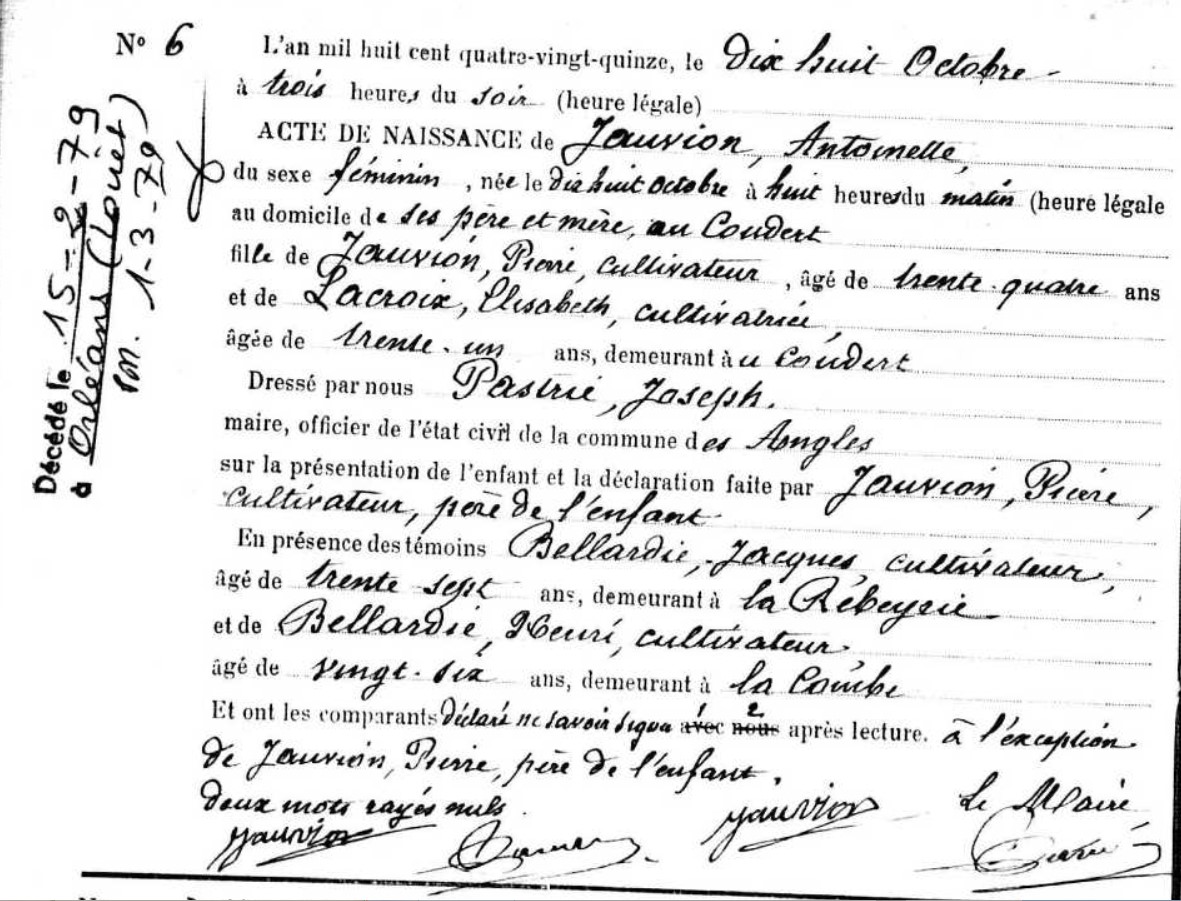 N° 6
L'an mil huit cent quatre-vingt-quinze, le Dix huit Octobre
à trois heures du soir (heure légale)
ACTE DE NAISSANCE de Jauvion, Antoinette,
du sexe féminin, née le dix huit octobre à huit heures du matin (heure légale
au domicile de ses père et mère, au Coudert
fille de Jauvion, Pierre, cultivateur, âgé de trente-quatre ans
et de Lacroix, Elisabeth, cultivatrice,
âgée de trente-un ans, demeurant à u Coudert
Dressé par nous Pastrie, Joseph.
maire, officier de l'état civil de la commune des Angles
sur la présentation de l'enfant et la déclaration faite par Jauvion, Pierre,
cultivateur, père de l'enfant
En présence des témoins Bellardie, Jacques, cultivateur,
âgé de trente sept ans, demeurant à la Rebeyrie
et de Bellardie, Henri, cultivateur,
âgé de vingt-six ans, demeurant à la Combe
Et ont les comparants déclaré ne savoir signer avec 1 nous 2 après lecture. à l'exception
de Jauvion, Pierre, père de l'enfant.
Deux mots rayés nuls.
Le Maire,
Jauvion Jauvion
Décédé le 15-2-79
à Orléans (Loiret)
1-3-79